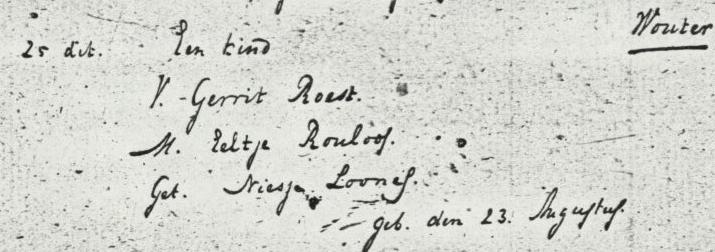 25 dit. Een kind Wouter
V. Gerrit Roest.
M. Eeltje Rouloof.
Get. Niesje Loones.
geb. den 23. Augustus.